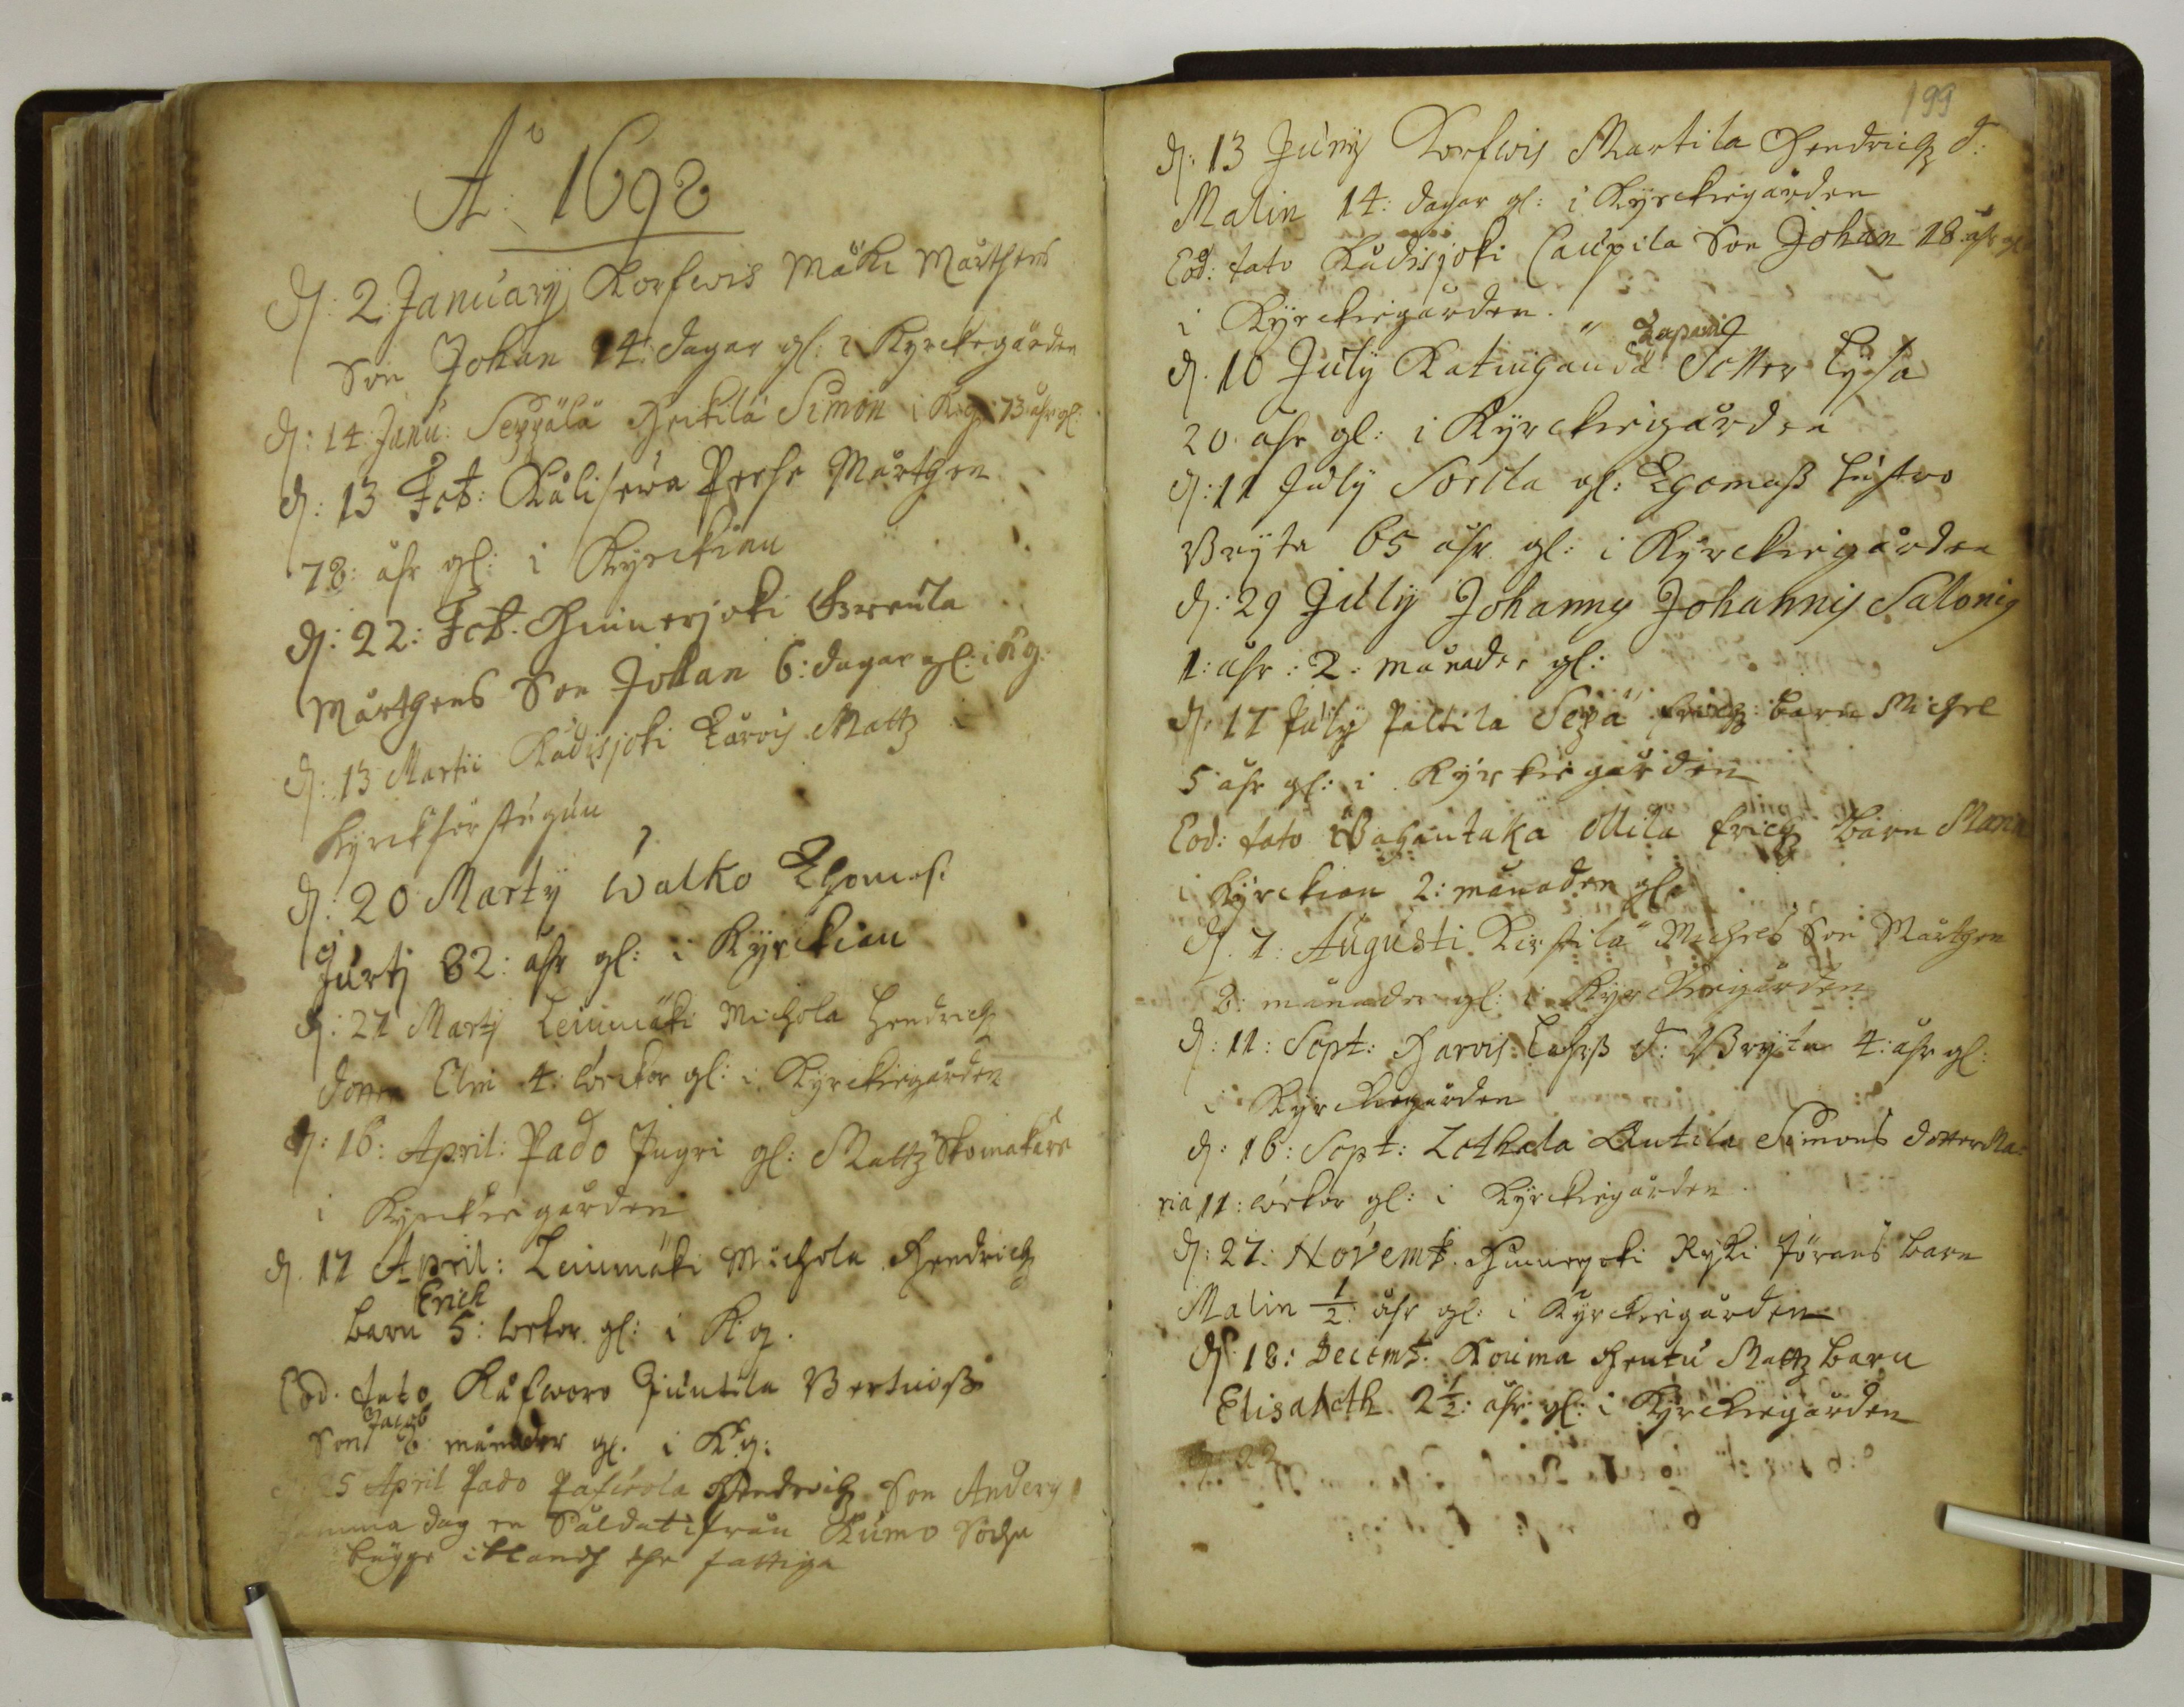 Aō: 1698
d: 2: January Korfwis Mäki Mårthens
Son Johan 14: dagar gl: i Kyrckegården
d: 14: Janu: Seppälä Heikilä Simon i K.g. 73 åhr gl:
d: 13 Feb: Mårthen
78: åhr gl: i Kyrckian
d: 22: Feb: Hinnerjoki
Mårthens Son Johan 6: dagar gl: i Kg:
d: 13 Martii Kådisjoki Mattz i
Kyrckförstugun
d: 20 Martij Walko Thomas
Jurtj 82: åhr gl: i Kyrckian
d: 27 Martj Leinmäki Michola Hendrichz
dotter Elin 4: weckor gl: i Kyrckiegården
d: 16: April: Pado gl: Mattz Skomakare
i Kyrckiegården
d. 17 April: Leinmäki Michola Hendrichz
Erich
barn 5: weckor gl: i K.g.
Eod. dato Juntila
Jacob
Son 6 månader gl. i K.g:
25 April Pado Hendrichz Son Anders
samma dag en Såldat ifrån Kumo Sochn
bägge iblandh the fattiga
199
d: 13 Junij Korfwis Martila Hendrichz d:
Malin 14: dagar gl: i Kyrckiegården
Eod: dato Kådisjoki Caupila Son Johan 18 åhr gl
i Kyrckiegården.
d. 10 July dotter Lysa
20 åhr gl: i Kyrckiegården
d: 11 July Sorila gl: Thomaß hustro
Bryta 65 åhr gl: i Kyrckiegården
d: 29 July Johannis Johannis Salonis
1: åhr: 2: månader gl:
d: 17 July Paltila Sepä Erichz barn Michel
5 åhr gl: i Kyrckiegården
Eod: dato Ollila Erichz barn Maria
i Kyrckian 2: månader gl:
d. 7: Augusti Kirstilä Michels Son Mårthen
3: månader gl: i Kyrckiegården
d: 11: Sept: Harvis Larß d: Bryta 4: åhr gl:
i Kyrckiegården
d: 16: Sept: Lethala Antila Simons dotter Ma-
ria 11: weckor gl: i Kyrckiegården.
d: 27: Novemb. Hinnerjoki Ryki Jörans barn
Malin 1/2: åhr gl: i Kyrckiegården
d: 18: Decemb: Kouma Hentu Mattz barn
Elisabeth 2 1/2: åhr gl: i Kyrckiegården